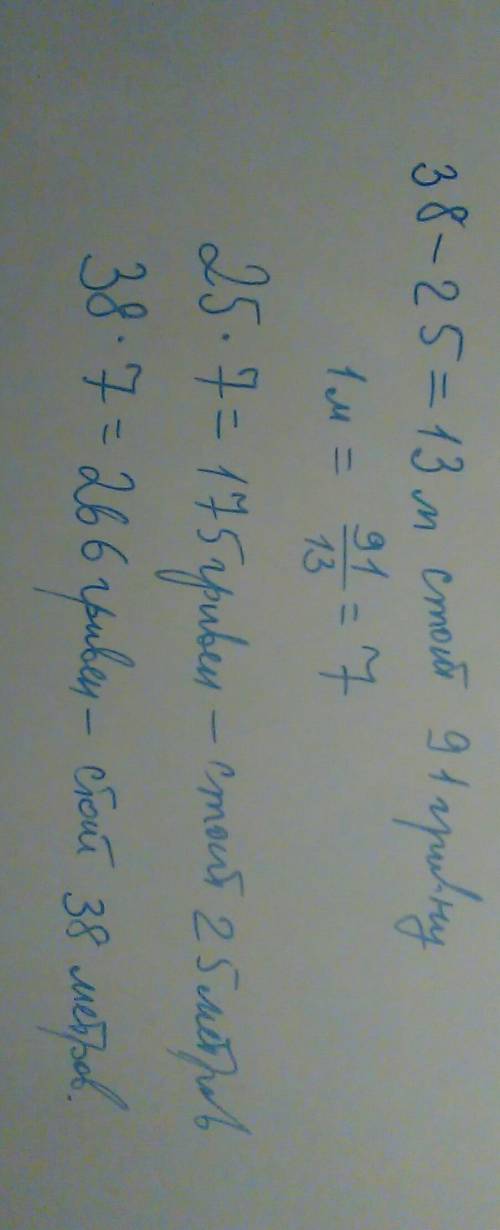 38 - 25 = 13 м стоит 91 гривну
1м = 91/13 = 7
25 · 7 = 175 гривен - стоит 25 метров
38 · 7 = 266 гривен - стоит 38 метров.